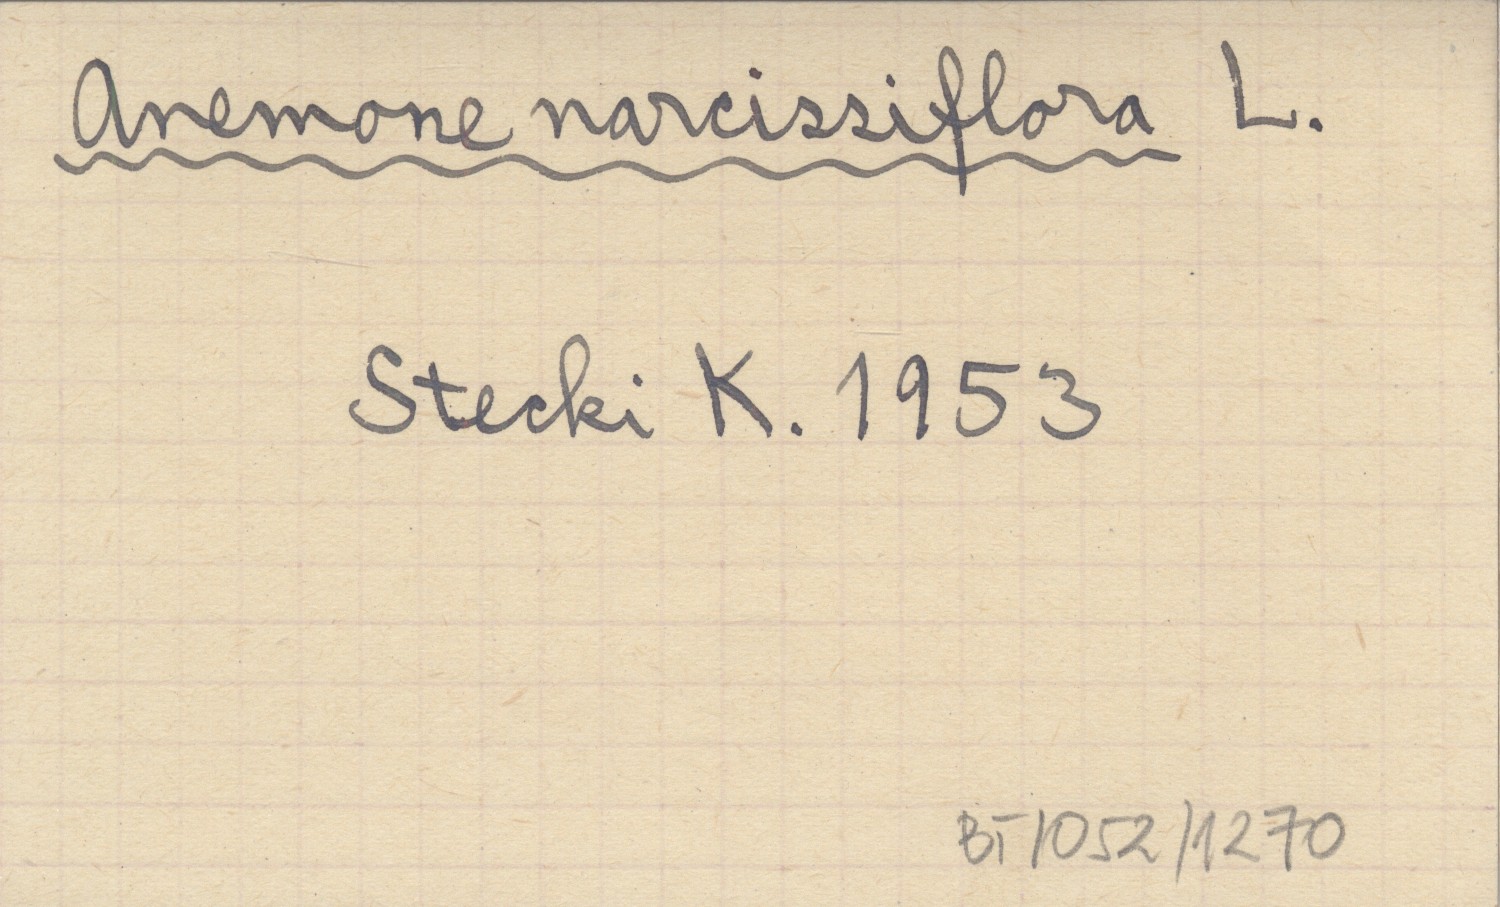 Anemone narcissiflora L.
Stecki K. 1953
BT/052/1270